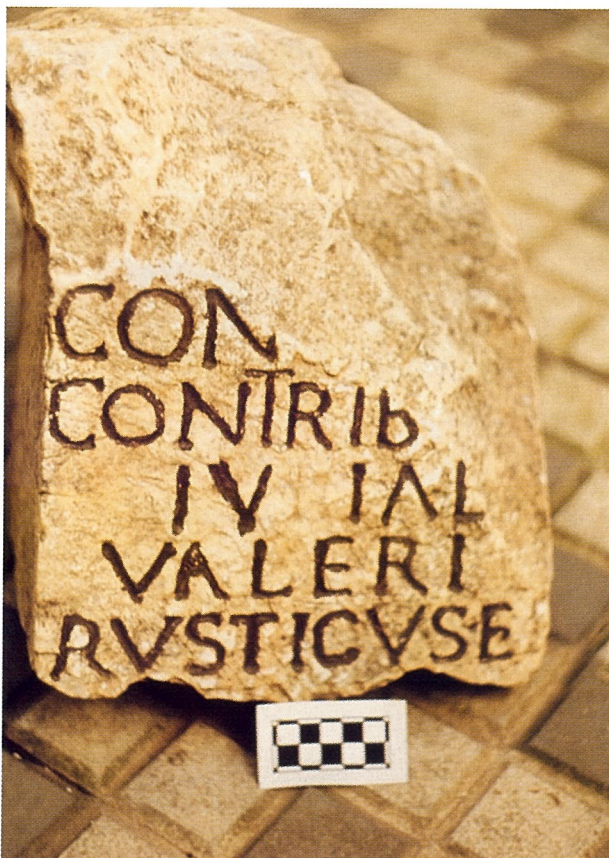 CON
CONTRIb
IV IAL
VALERI
RVSTICVSE